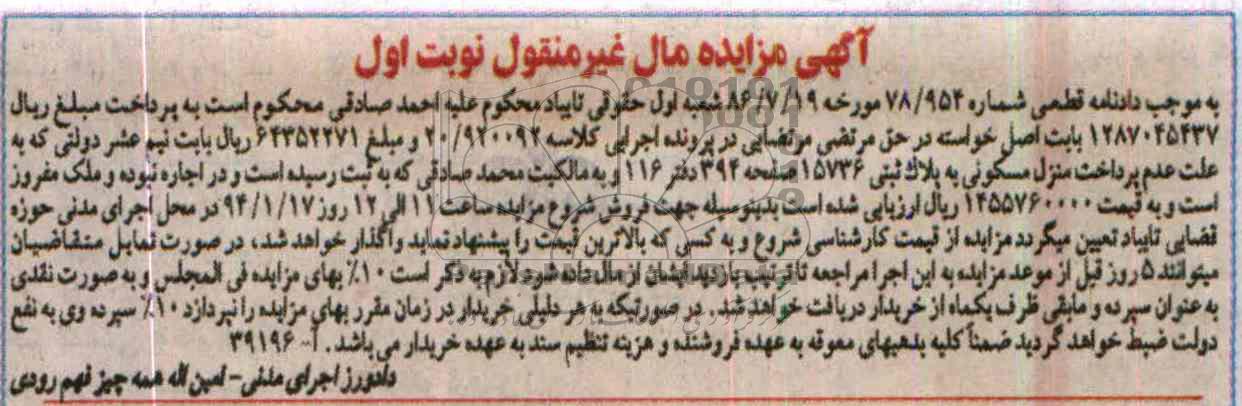 آگهی مزایده مال غیرمنقول نوبت اول
به موجب دادنامه قطعی شماره ۷۸/۹۵۴ مورخه ۸۶/۷/۱۹ شعبه اول حقوقی تایباد محکوم علیه احمد صادقی محکوم است به پرداخت مبلغ ریال
۱۲۸۷۰۴۵۴۳۷ بابت اصل خواسته در حق مرتضی مرتضایی در پرونده اجرایی کلاسه ۲۰/۹۲۰۰۹۲ و مبلغ ۶۴۳۵۲۲۷۱ ریال بابت نیم عشر دولتی که به
علت عدم پرداخت منزل مسکونی به پلاک ثبتی ۱۵۷۳۶ صفحه ۳۹۴ دفتر ۱۱۶ و به مالکیت محمد صادقی که به ثبت رسیده است و در اجاره نبوده و ملک مفروز
است و به قیمت ۱۴۵۵۷۶۰۰۰۰ ریال ارزیابی شده است بدینوسیله جهت فروش شروع مزایده ساعت ۱۱ الی ۱۲ روز ۹۴/۱/۱۷ در محل اجرای مدنی حوزه
قضایی تایباد تعیین میگردد مزایده از قیمت کارشناسی شروع و به کسی که بالاترین قیمت را پیشنهاد نماید واگذار خواهد شد، در صورت تمایل متقاضیان
میتوانند ۵ روز قبل از موعد مزایده به این اجرا مراجعه تا ترتیب بازدید ایشان از مال داده شود لازم به ذکر است ۱۰٪ بهای مزایده فی المجلس و به صورت نقدی
به عنوان سپرده و مابقی ظرف یکماه از خریدار دریافت خواهد شد. در صورتیکه به هر دلیلی خریدار در زمان مقرر بهای مزایده را نپردازد ۱۰٪ سپرده وی به نفع
دولت ضبط خواهد گردید ضمناً کلیه بدهیهای معوقه به عهده فروشنده و هزینه تنظیم سند به عهده خریدار می باشد. آ- ۳۹۱۹۶
دادورز اجرای مدنی- امین اله همه چیز فهم رودی